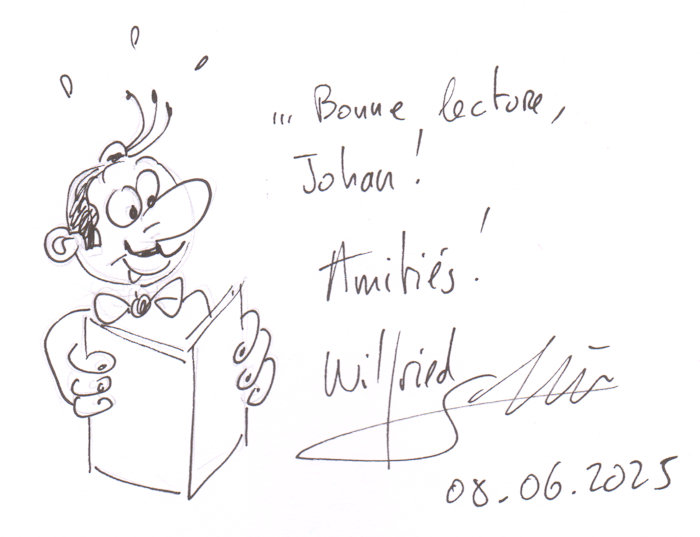 ... Bonne lecture,
Johan!
Amitiés!
Wilfried
08.06.2025